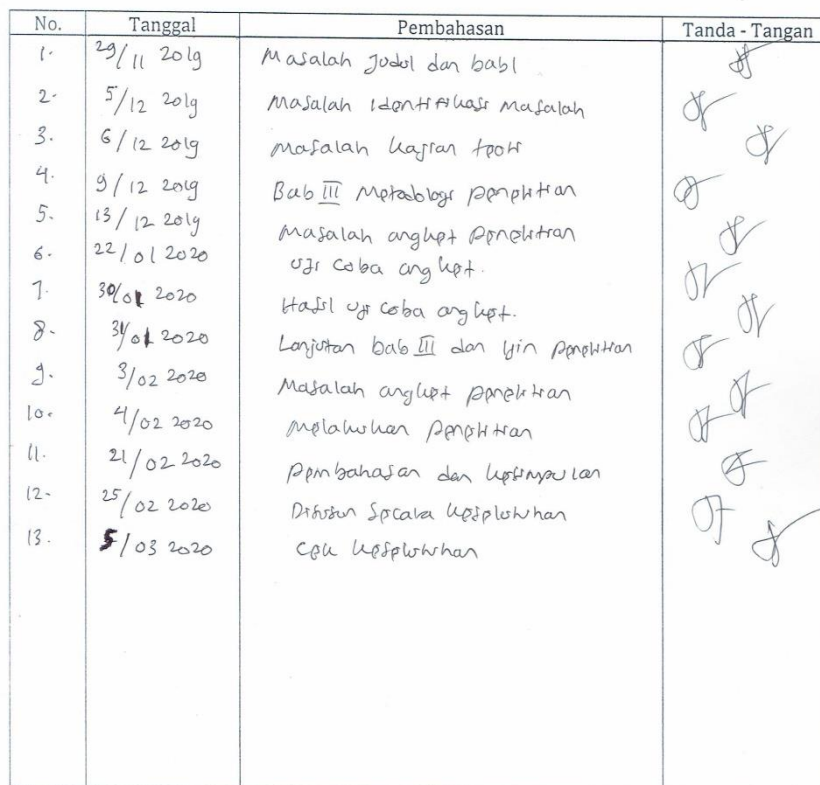 No. Tanggal Pembahasan Tanda - Tangan
1. 29/11 2019 Masalah Judul dan bab 1
2. 5/12 2019 Masalah Identifikasi Masalah
3. 6/12 2019 Masalah kajian teori
4. 9/12 2019 Bab III Metodologi penelitian
5. 13/12 2019 Masalah angket Penelitian
6. 22/01 2020 Uji Coba angket.
7. 30/01 2020 Hasil uji coba angket.
8. 31/01 2020 Lanjutan bab III dan ijin Penelitian
9. 3/02 2020 Masalah angket penelitian
10. 4/02 2020 Melakukan Penelitian
11. 21/02 2020 Pembahasan dan kesimpulan
12. 25/02 2020 Disusun Secara keseluruhan
13. 5/03 2020 Cek keseluruhan